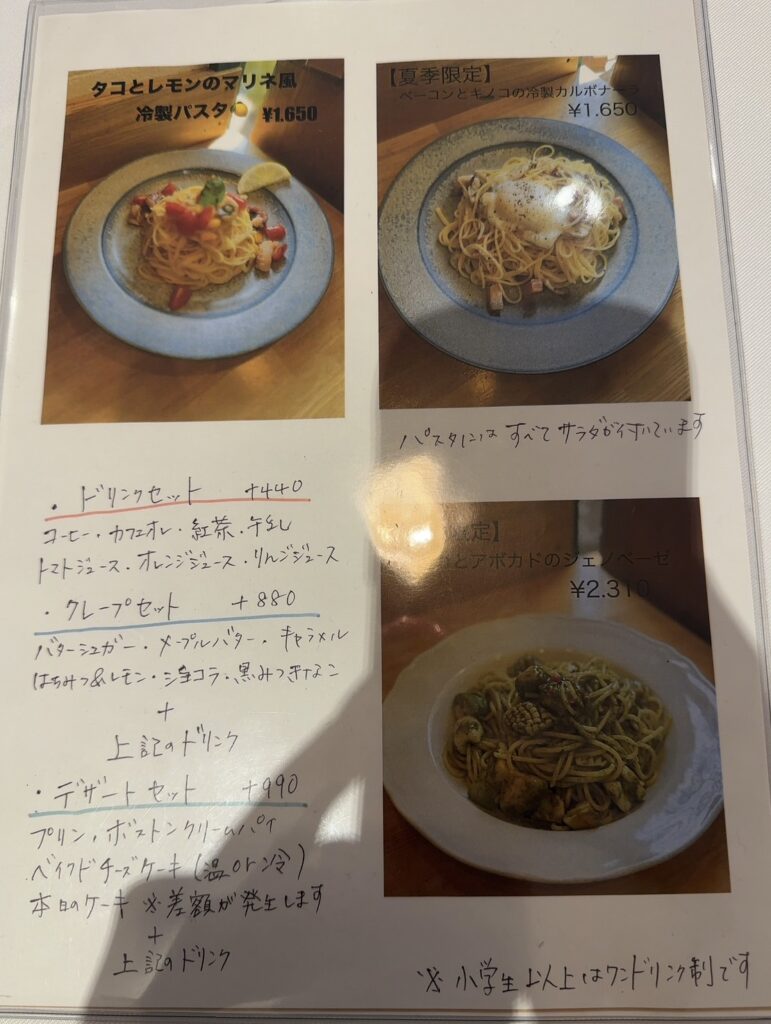 タコとレモンのマリネ風
冷製パスタ🍋 ¥1.650
【夏季限定】
ベーコンとキノコの冷製カルボナーラ
¥1.650
パスタにはすべてサラダが付いています
・ドリンクセット +440
コーヒー・カフェオレ・紅茶・牛乳
トマトジュース・オレンジジュース・りんごジュース
・クレープセット +880
バターシュガー・メープルバター・キャラメル
はちみつ&レモン・ショコラ・黒みつきなこ
+
上記のドリンク
・デザートセット +990
プリン・ボストンクリームパイ
ベイクドチーズケーキ(温or冷)
本日のケーキ ※差額が発生します
+
上記のドリンク
限定】
とアボカドのジェノベーゼ
¥2.310
※小学生以上はワンドリンク制です